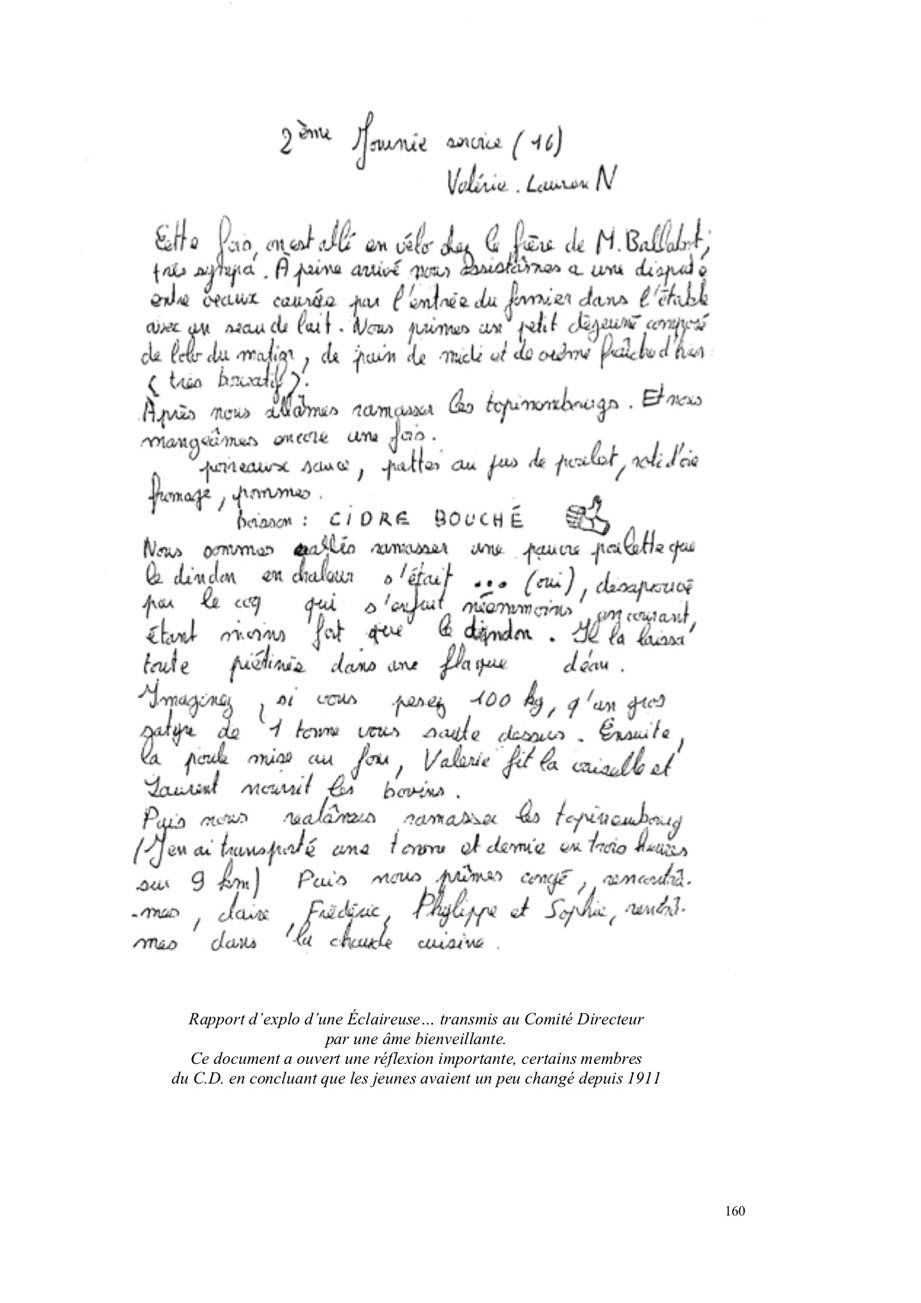 2ème Journée service (16)
Valérie. Lauren N
Cette fois, on est allé en vélo chez le frère de M. Ballabot,
très sympa. À peine arrivé nous assistâmes a une dispute
entre veaux causée par l'entrée du fermier dans l'étable
avec un seau de lait. Nous primes un petit déjeuné composé
de lolo du matin, de pain de midi et de crème fraîche d'hier
(très laxatif).
Après nous allâmes ramasser les topinombourgs. Et nous
mangeâmes encore une fois.
poireaux sauce, pattes au jus de poulet, roti d'oie
fromage, pommes.
Boisson : CIDRE BOUCHÉ
Nous sommes allés ramasser une pauvre poulette que
le dindon en chaleur s'était ... (oui), désaprouvé
par le coq qui s'enfuit néanmoins, en courant,
étant moins fort que le dindon. Il la laissa
toute piétinée dans une flaque déau.
Imaginez, si vous pesez 100 kg, q'un gros
satyre de 1 tonne vous saute dessus. Ensuite,
la poule mise au four, Valerie fit la vaiselle et
Laurent nourrit les bovins.
Puis nous realâmes ramasser les topinembourg
(J'en ai transporté une tonne et demie en trois heures
sur 9 km) Puis nous prîmes congé, rencontrâ-
-mes, claire, Frédéric, Phylippe et Sophie, rentrâ-
mes dans la chaude cuisine.
Rapport d'explo d'une Éclaireuse… transmis au Comité Directeur
par une âme bienveillante.
Ce document a ouvert une réflexion importante, certains membres
du C.D. en concluant que les jeunes avaient un peu changé depuis 1911
160